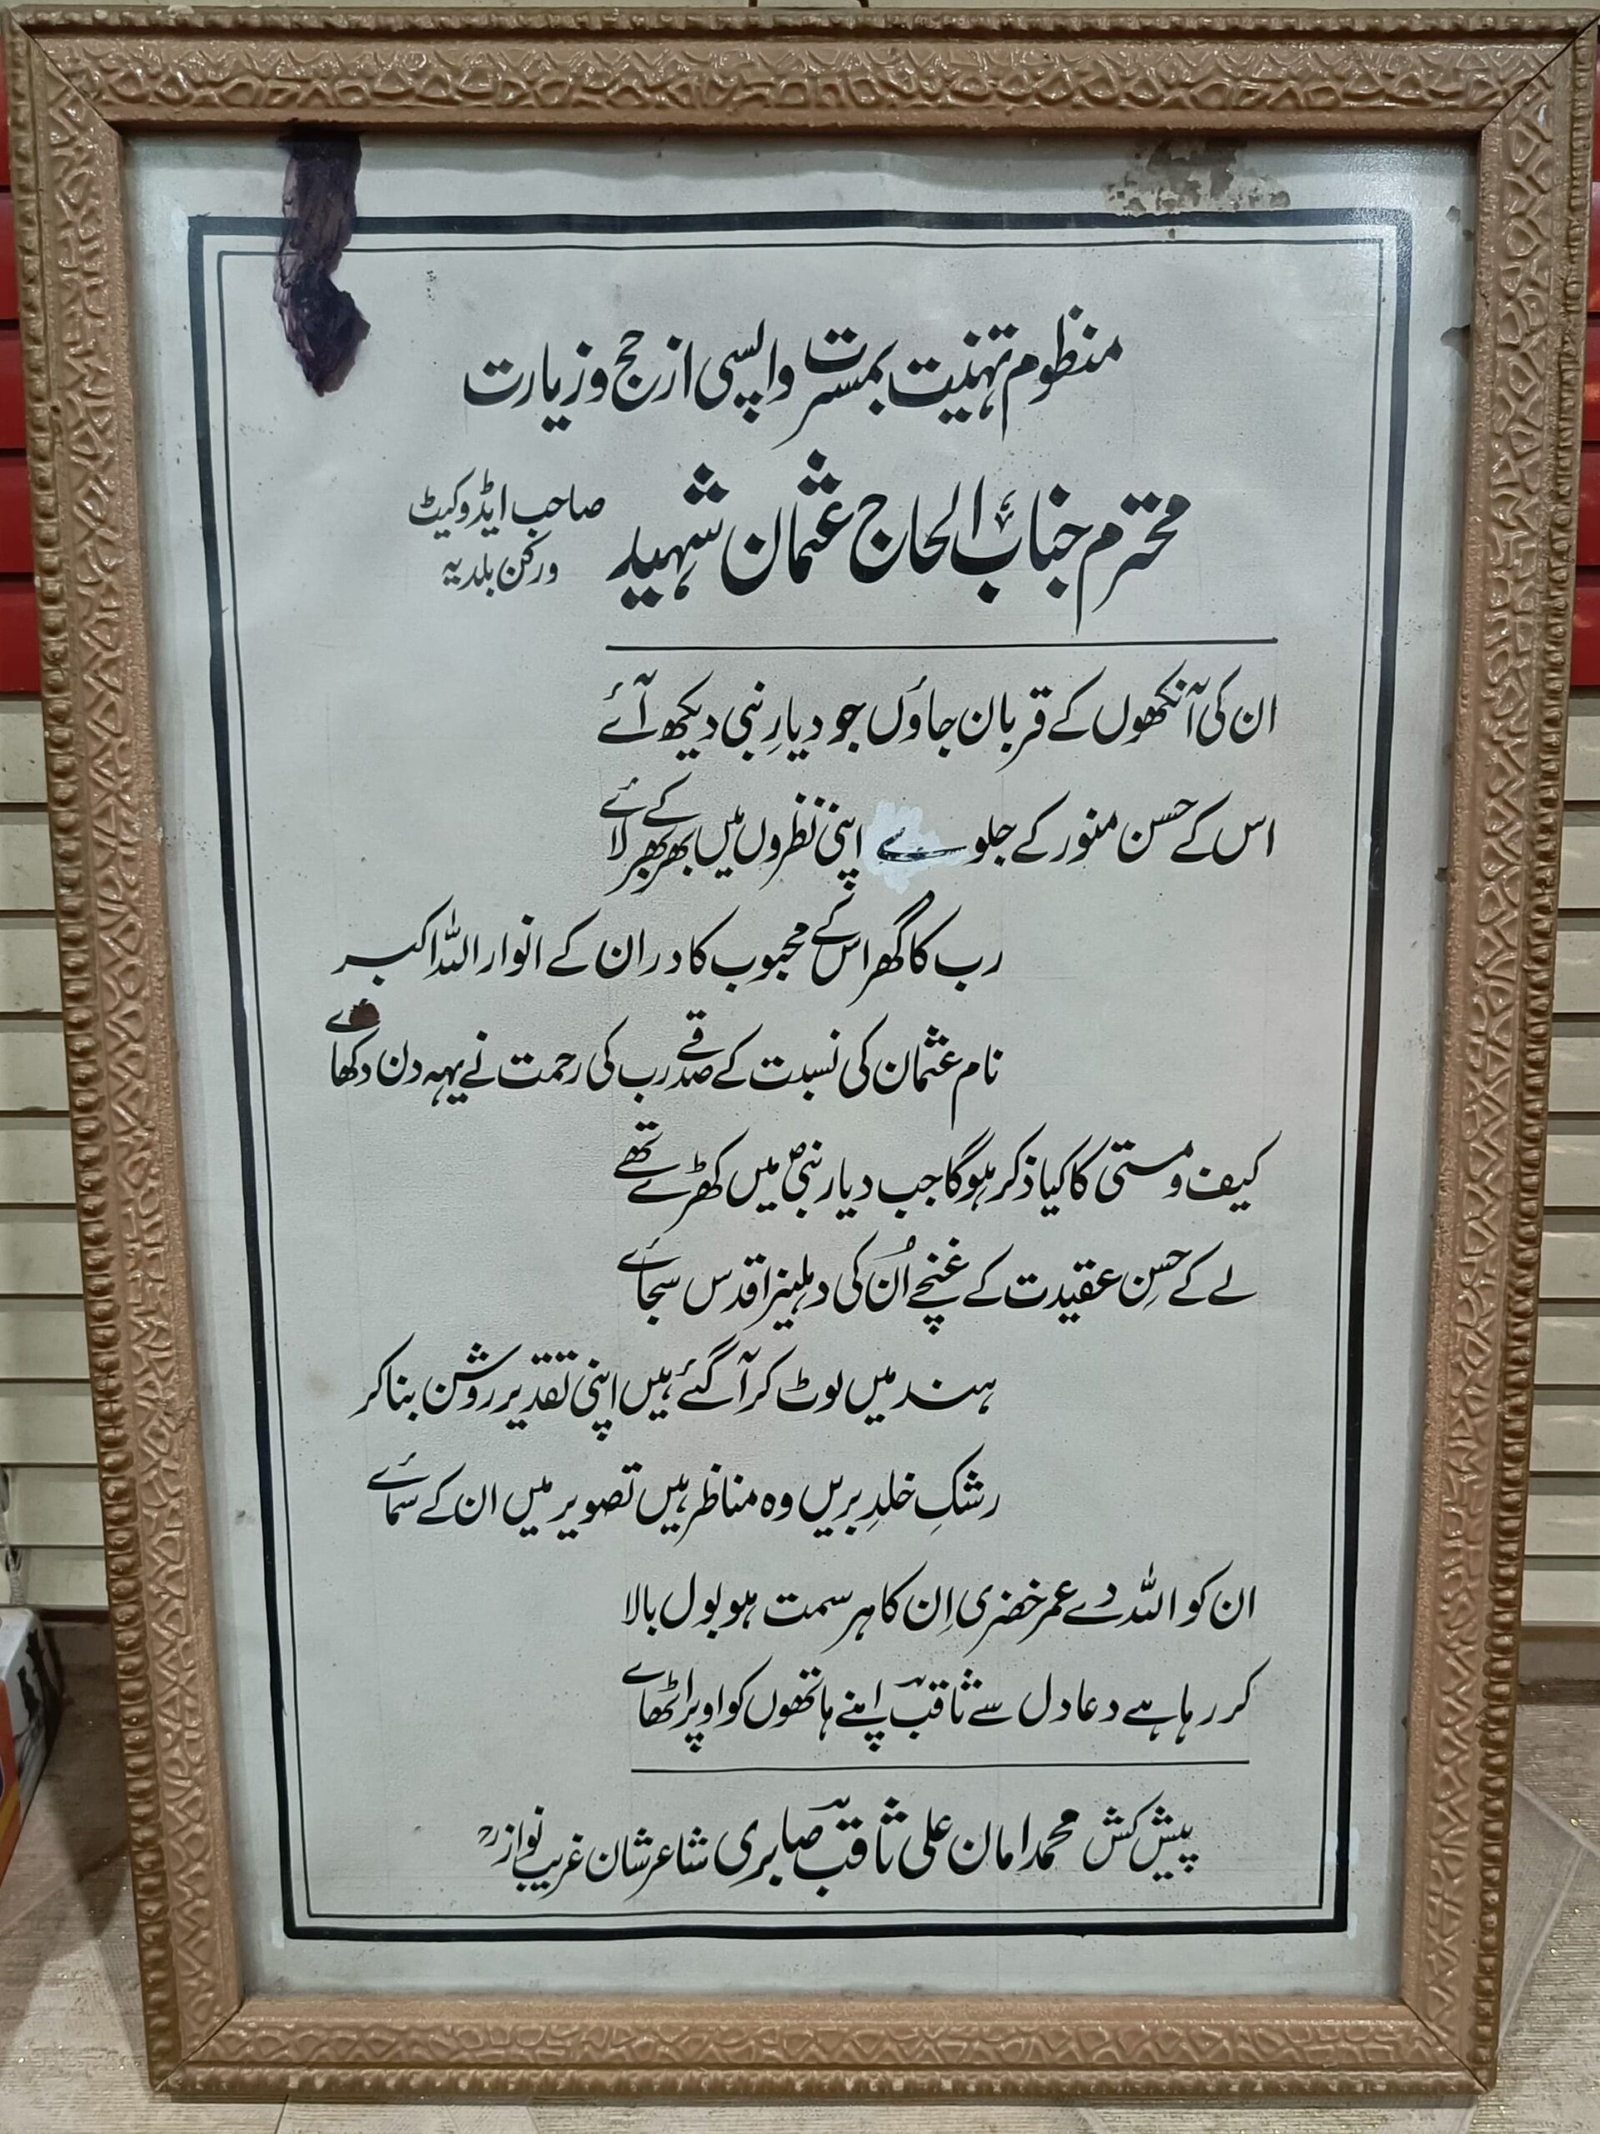 منظوم تہنیت بمسرت واپسی از حج و زیارت
محترم جناب الحاج عثمان شہید صاحب ایڈوکیٹ
ورکن بلدیہ
ان کی آنکھوں کے قربان جاوٗں جو دیارِ نبی دیکھ آئے
اس کے حسن منور کے جلوے اپنی نظروں میں بھر بھر کے لائے
رب کا گھر اس کے محبوب کا در ان کے انوار اللہ اکبر
نام عثمان کی نسبت کے صدقے رب کی رحمت نے یہہ دن دکھائے
کیف و مستی کا کیا ذکر ہوگا جب دیار نبیؐ میں کھڑے تھے
لے کے حسنِ عقیدت کے غنچے اُن کی دہلیز اقدس سجائے
ہند میں لوٹ کر آگئے ہیں اپنی تقدیر روشن بنا کر
رشکِ خلدِ بریں وہ مناظر ہیں تصویر میں ان کے سمائے
ان کو اللہ دے عمر خضری اِن کا ہر سمت ہو بول بالا
کر رہا ہے دعا دل سے ثاقب اپنے ہاتھوں کو اوپر اٹھائے
پیش کش محمد امان علی ثاقب صابری شاعر شان غریب نوازؒ